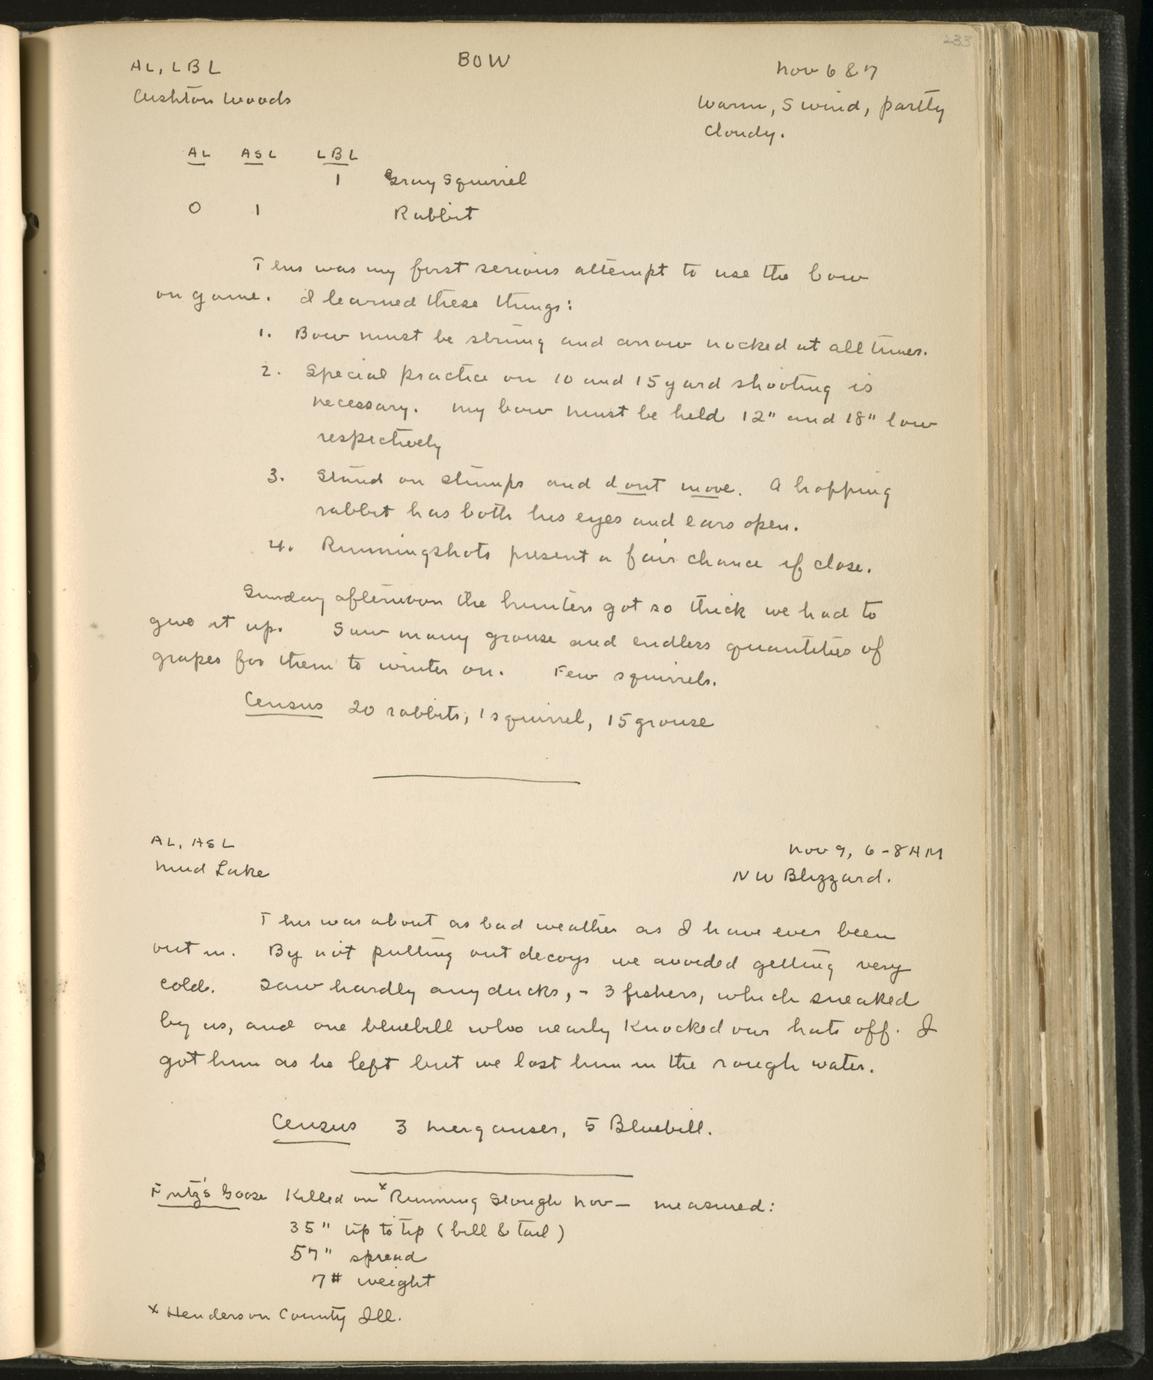 233
AL, LBL BOW Nov 6 & 7
Cushton Woods Warm, S wind, partly
cloudy.
AL ASL LBL
1 Gray Squirrel
0 1 Rabbit
This was my first serious attempt to use the bow
on game. I learned these things:
1. Bow must be strung and arrow nocked at all times.
2. Special practice on 10 and 15 yard shooting is
necessary. My bow must be held 12" and 18" low
respectively
3. Stand on stumps and dont move. A hopping
rabbit has both his eyes and ears open.
4. Running shots present a fair chance if close.
Sunday afternoon the hunters got so thick we had to
give it up. Saw many grouse and endless quantities of
grapes for them to winter on. Few squirrels.
Census 20 rabbits, 1 squirrel, 15 grouse
AL, ASL Nov 9, 6-8 AM
Mud Lake NW Blizzard.
This was about as bad weather as I have ever been
out in. By not putting out decoys we avoided getting very
cold. Saw hardly any ducks, - 3 fishers, which sneaked
by us, and one bluebill who nearly knocked our hats off. I
got him as he left but we lost him in the rough water.
Census 3 merganser, 5 Bluebill.
Fritz's Goose killed on x Running Slough Nov — measured:
35" tip to tip (bill & tail)
57" spread
7# weight
x Henderson County Ill.